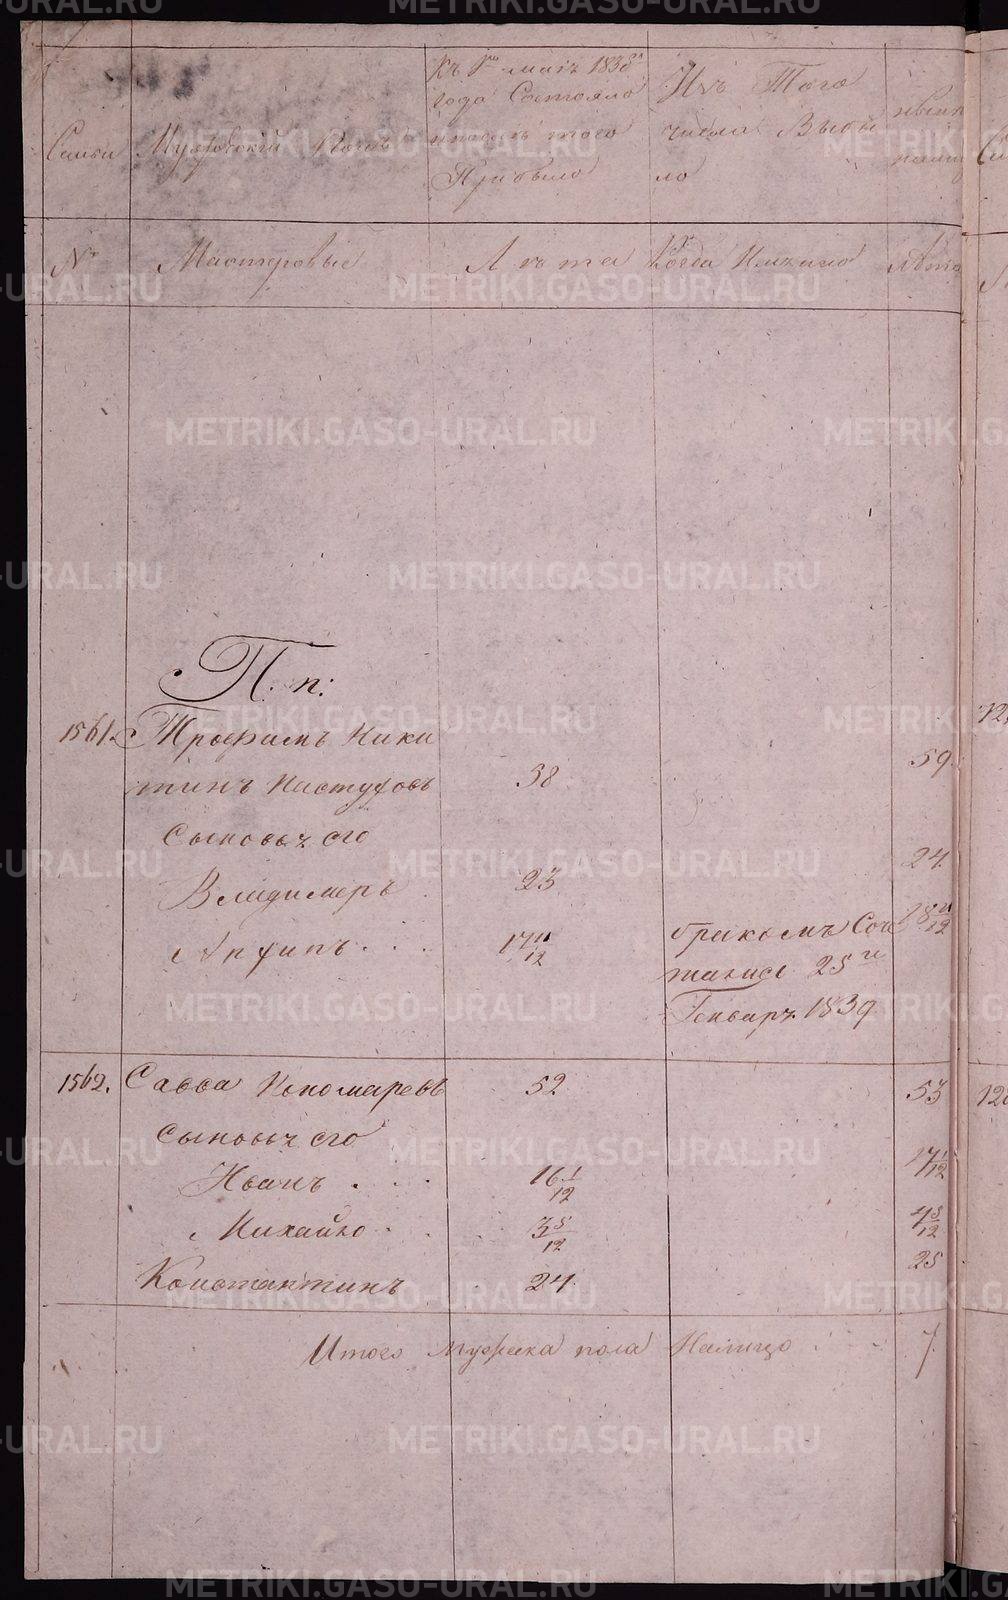 METRIKI.GASO-URAL.RU
Семьи
Мужескій Полъ
Къ 1му маія 1838го
года Состояло
и послѣ того
Прибыло
Изъ Того
числа Выбы
ло
№
Мастеровые
Лѣта
Когда Имянно
Лѣта
П. п:
1561.
Трофимъ Ники
тинъ Пастуховъ
58
59.
Сыновья его
Владимеръ
23
24
Архипъ . . .
17 11/12
бракомъ Соче
18 11/12
тались 25го
Генваря 1839
1562.
Савва Пономаревъ
52
53
Сыновья его
Иванъ . . .
16 1/12
17 1/12
Михайло . .
3 5/12
4 5/12
Константинъ
24.
25
Итого мужеска пола Налицо
7